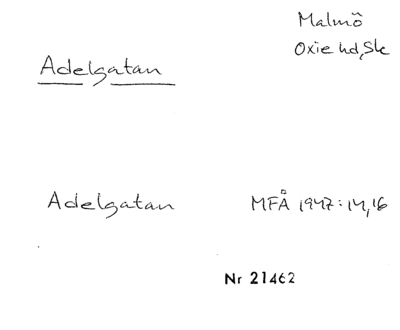 Malmö
Oxie hd, Sk
Adelgatan
Adelgatan MFÅ 1947:14,16
Nr 21462